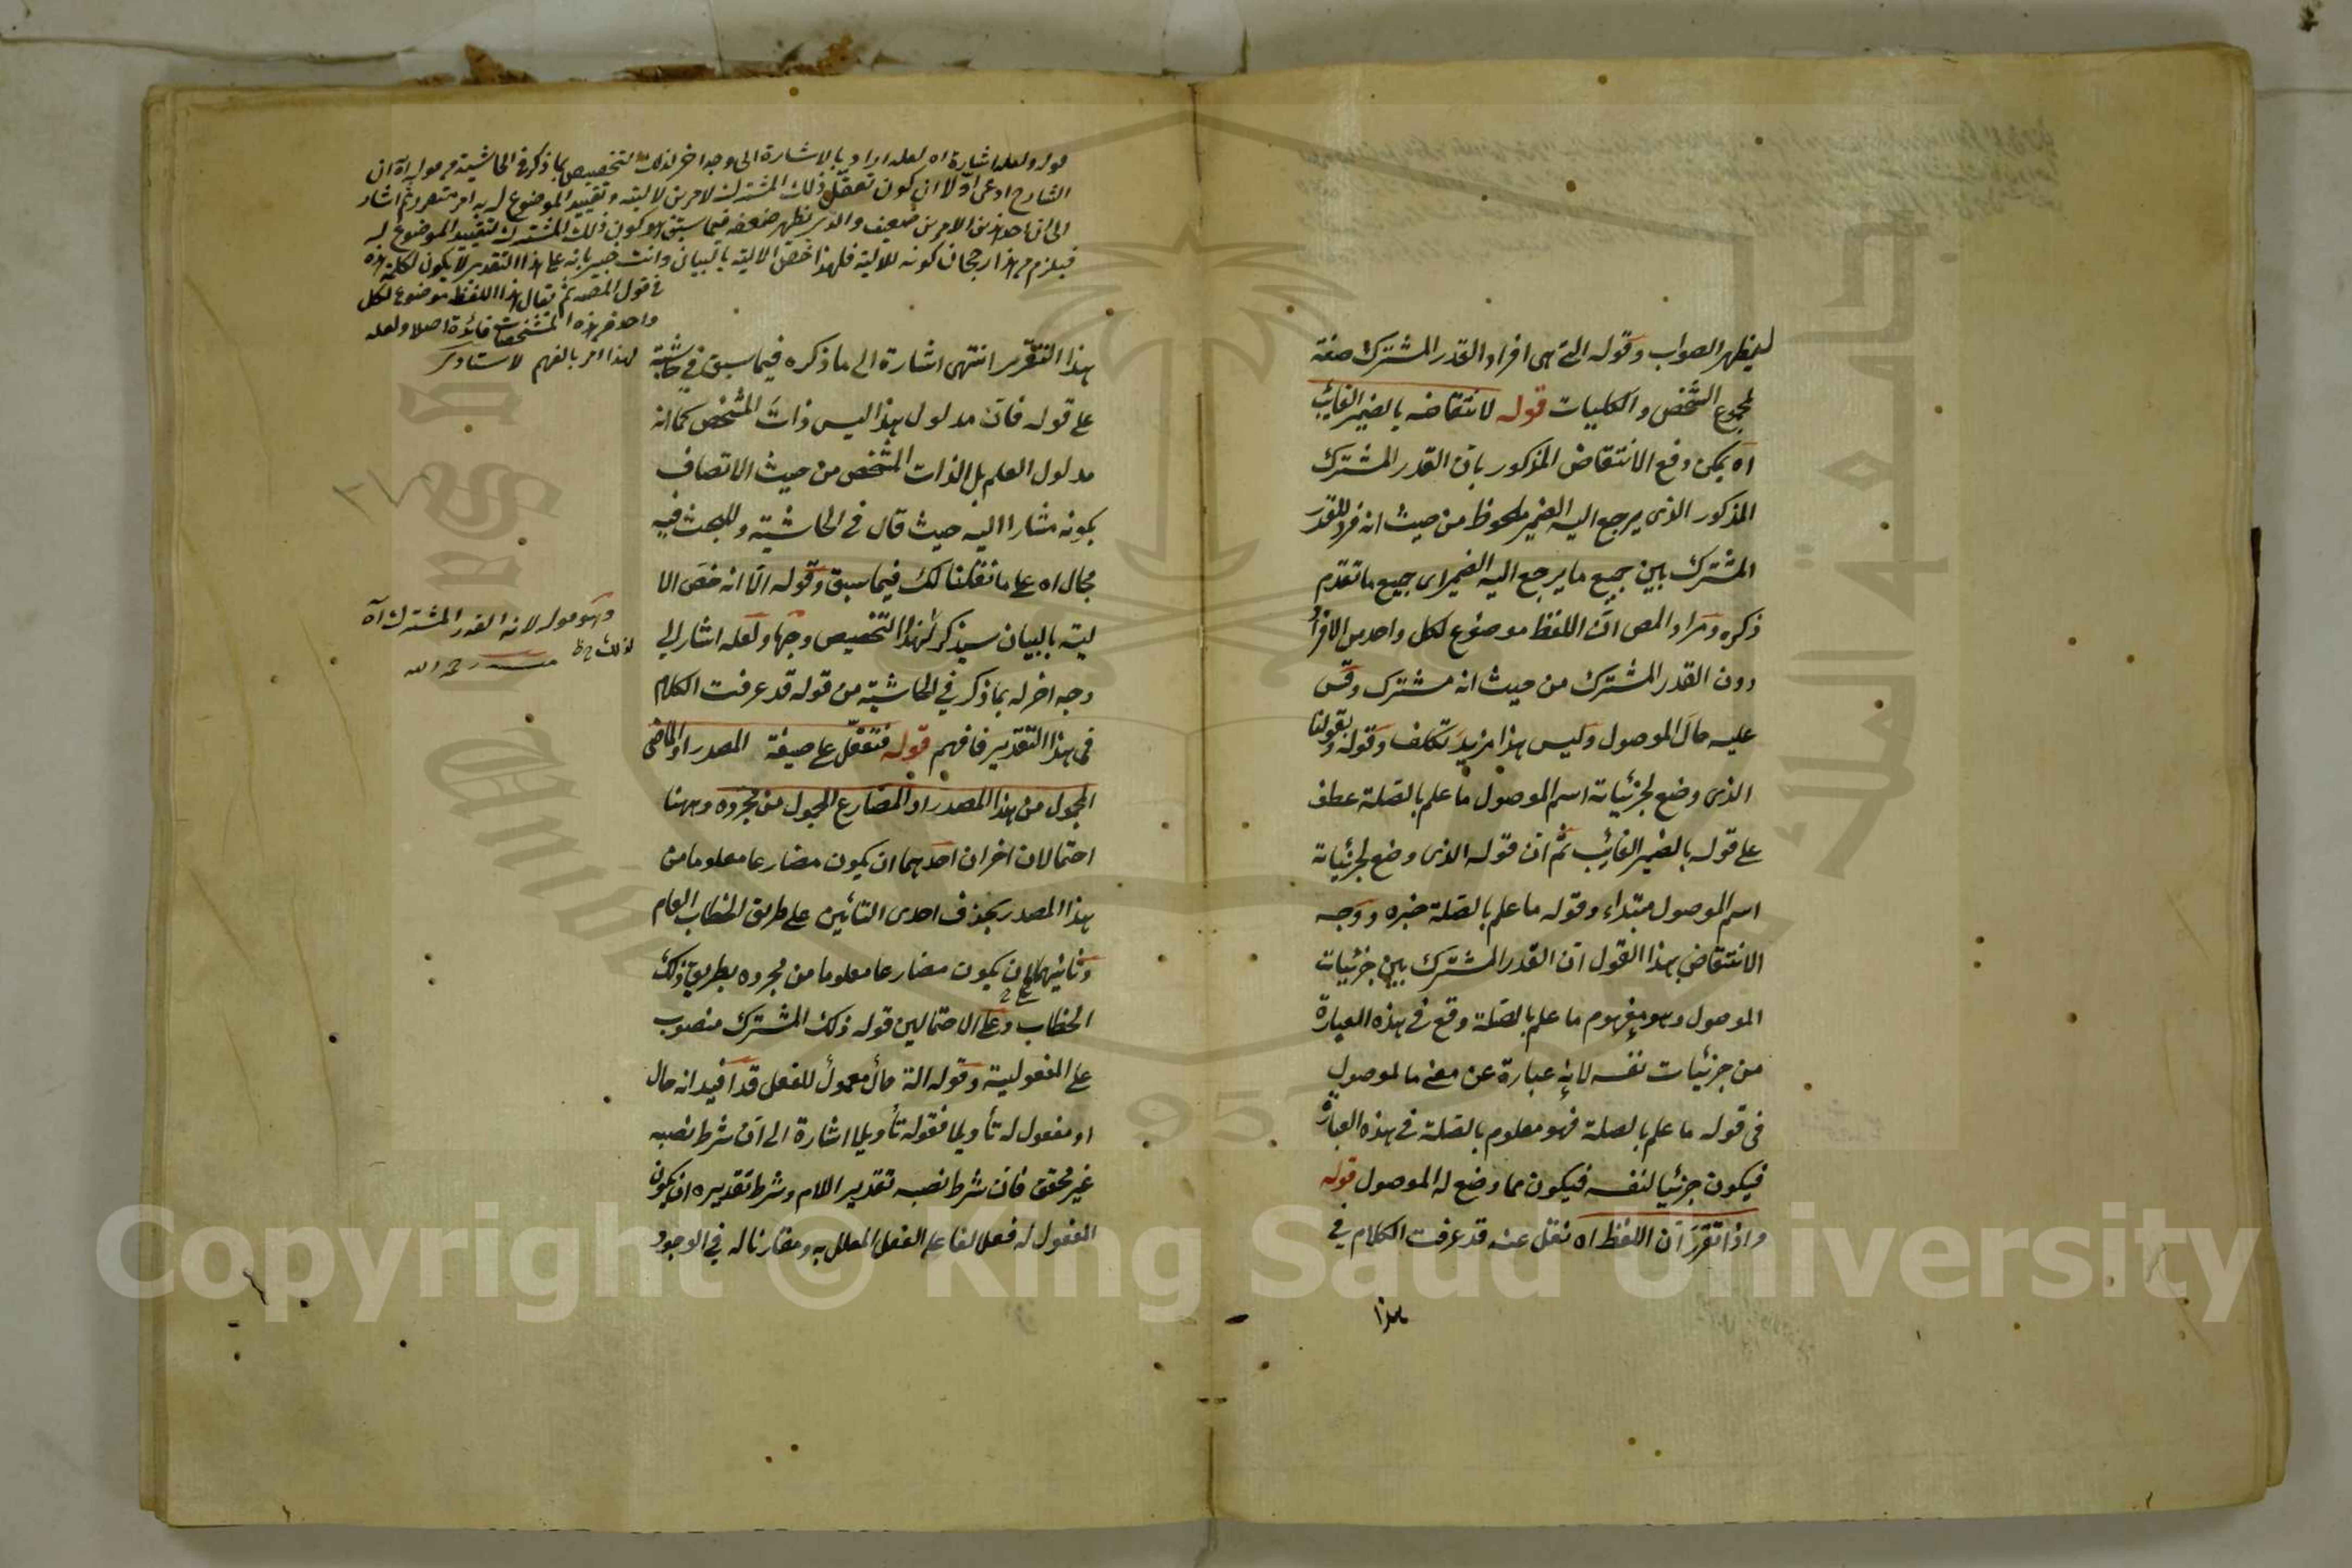 ليظهر الصواب وقوله التى هى افراد القدر المشترك صفة
لمجموع الشخص والكليات قوله لانتقاضه بالضمير الغائب
اه يمكن دفع الانتقاض المذكور بان القدر المشترك
المذكور الذى يرجع اليه الضمير ملحوظ من حيث انه فرد للقدر
المشترك بين جميع ما يرجع اليه الضمير اى جميع ما تقدم
ذكره ومراد المص ان اللفظ موضوع لكل واحد من الافراد
دون القدر المشترك من حيث انه مشترك وقس
عليه حال الموصول وليس هذا مزيد تكلف وقوله وبقولنا
الذى وضع لجزئياته اسم الموصول ما علم بالصلة عطف
على قوله بالضمير الغائب ثم ان قوله الذى وضع لجزئياته
اسم الموصول مبتداء وقوله ما علم بالصلة خبره ووجه
الانتقاض بهذا القول ان القدر المشترك بين جزئيات
الموصول وهو مفهوم ما علم بالصلة وقع فى هذه العبارة
من جزئيات نفسه لانه عبارة عن معنى ما الموصول
فى قوله ما علم بالصلة فهو معلوم بالصلة فى هذه العبارة
فيكون جزئيا لنفسه فيكون مما وضع له الموصول قوله
واذا تقرر ان اللفظ اه نقل عنه قد عرفت الكلام في
هذا
قوله ولعله اشارة اه لعله اراد بالاشارة الى وجه اخر لذلك التخصيص بما ذكر في الحاشية من قوله اه ان
الشارح ادعى اولا ان كون تعقل ذلك المشترك لامرين لآليته وتقييد الموضوع له به امر متقرر ثم اشار
الى ان احد هذين الامرين ضعيف والذى يظهر ضعفه فيما سبق هو كون ذلك المشترك لتقييد الموضوع له
فيلزم من هذا رجحان كونه للآلية فلهذا خص الآلية بالبيان وانت خبير بانه على هذا التقدير لا يكون لكلمة هذه
في قول المصه ثم يقال هذا اللفظ موضوع لكل
واحد من هذه المشخصات فائدة اصلا ولعله
لهذا امر بالفهم لاستاذ
هذا التقرير انتهى اشارة الى ما ذكره فيما سبق في حاشية
على قوله فان مدلول هذا ليس ذات المشخص كما انه
مدلول العلم بل الذات المشخص من حيث الاتصاف
بكونه مشارا اليه حيث قال فى الحاشية وللبحث فيه
مجال اه على ما نقلنا لك فيما سبق وقوله الا انه خص الا
لية بالبيان سيذكر لهذا التخصيص وجها ولعله اشار الى
وجه اخر له بما ذكر في الحاشية من قوله قد عرفت الكلام
فى هذا التقدير فافهم قوله فتعقل على صيغة المصدر او الماضى
المجهول من هذا المصدر او المضارع المجهول من مجرده وههنا
احتمالان اخران احدهما ان يكون مضارعا معلوما من
هذا المصدر بحذف احدى التائين على طريق الخطاب العام
وثانيهما ان يكون مضارعا معلوما من مجرده بطريق ذلك
الخطاب وعلى الاحتمالين قوله ذلك المشترك منصوب
على المفعولية وقوله آلة حال معمول للفعل قد افيد انه حال
او مفعول له تأويلا فقوله تأويلا اشارة الى ان شرط نصبه
غير محقق فان شرط نصبه تقدير اللام وشرط تقديره ان يكون
المفعول له فعلا لفاعل الفعل المعلل به ومقارنا له في الوجود
وهو قوله لانه القدر المشترك اه
رحمه الله
Copyright © King Saud University